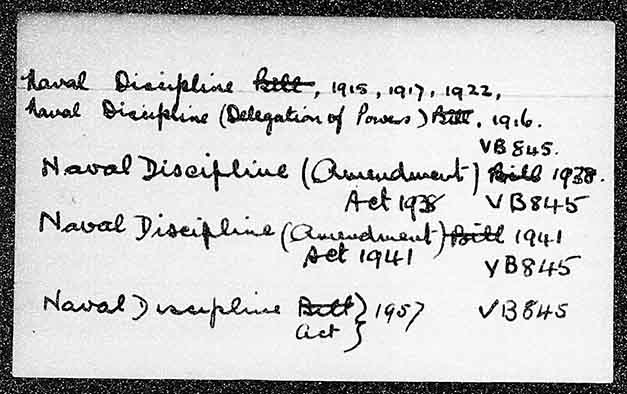 Naval Discipline Bill, 1915, 1917, 1922,
Naval Discipline (Delegation of Powers) Bill, 1916.
VB845.
Naval Discipline (Amendment) Bill 1938.
Act 1938 VB845
Naval Discipline (Amendment) Bill 1941
Act 1941 VB845
Naval Discipline Bill } 1957 VB845
Act }